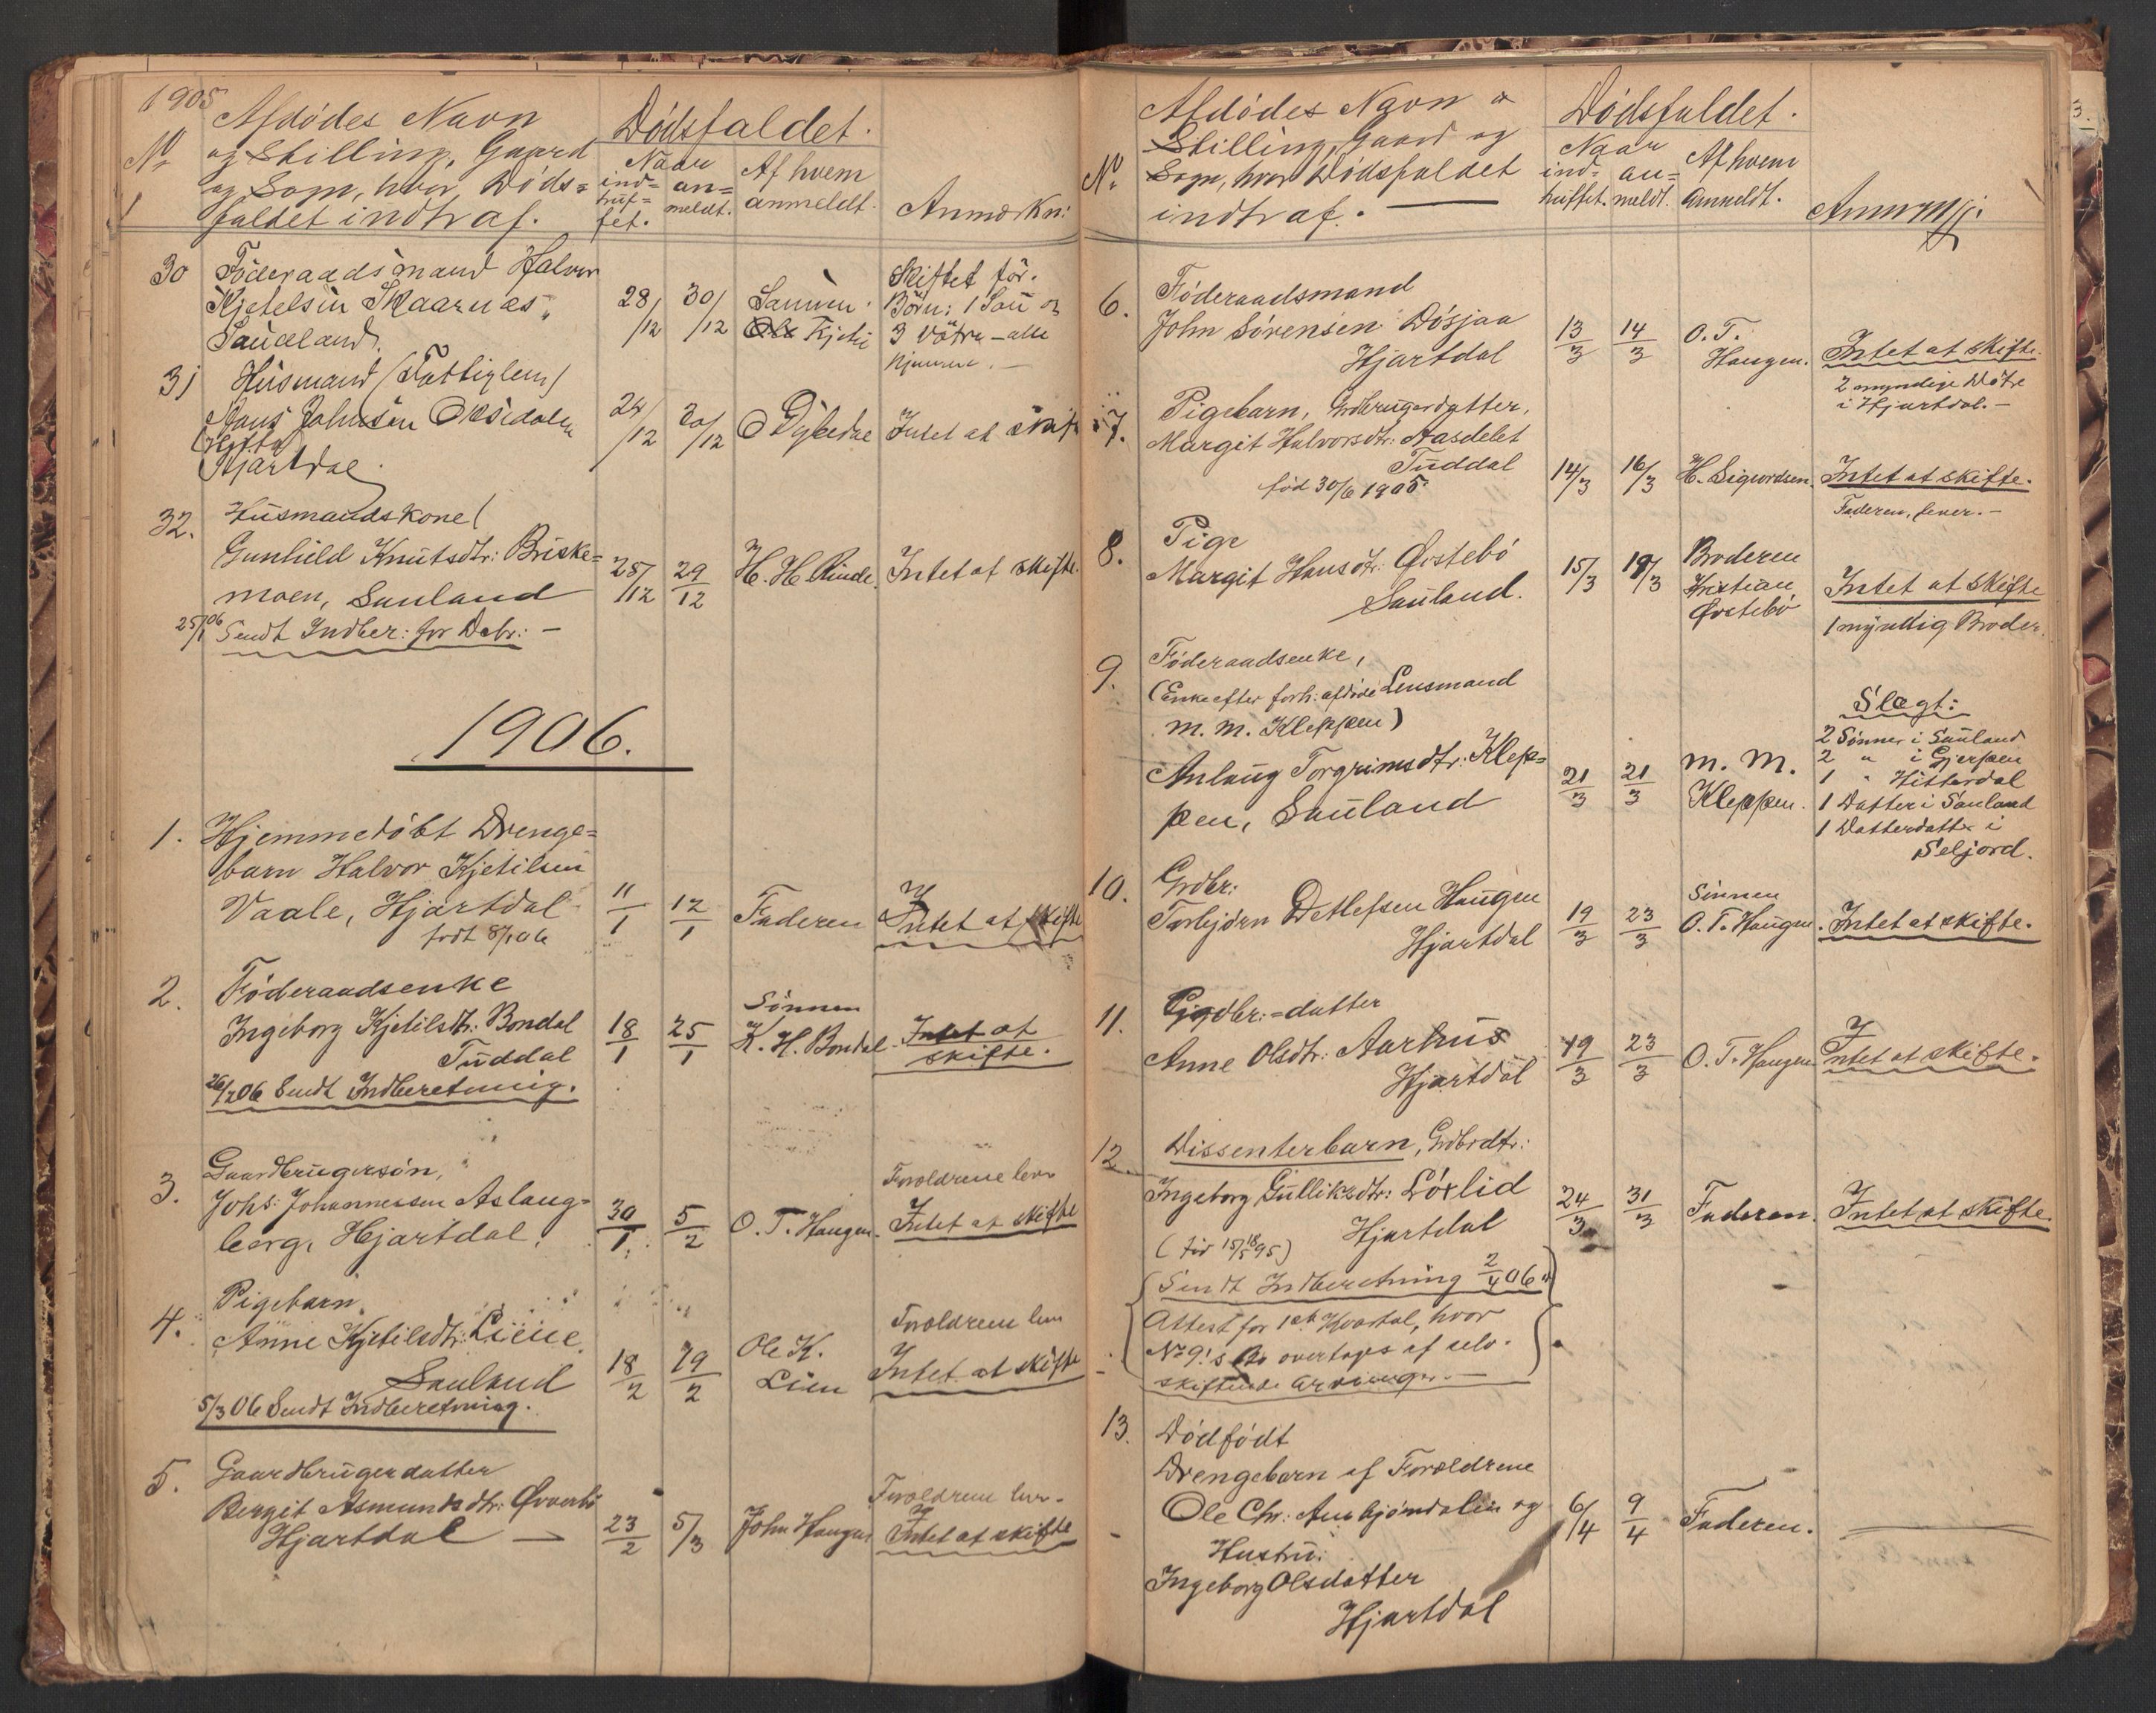 1905
Afdødes Navn
og Stilling, Gaard
og Sogn, hvor Døds=
faldet indtraf.
No
Dødsfaldet.
Naar
ind=
truf=
fet.
an=
meldt.
Af hvem
anmeldt.
Anmærkn:
30 Föderaadsmand Halvor
Kjetelsen Skaarnes,
Saueland.
28/12 30/12
Sønnen
Kjetil
Skiftet för.
Börn: 1 Søn og
3 Döttre – alle

31 Husmand (Fattiglem)
Hans Johnsen
Hjartdal.
24/12 30/12
O
Intet at skifte
32. Husmandskone
Gunhild Knutsdtr: Briske=
moen, Sauland
28/12 29/12
H. H. Rinde.
Intet at skifte.
25/1 06 Sendt Indber: for Debr: –
1906.
1. Hjemmedöbt Drenge=
barn Halvor Kjetilsen
Vaale, Hjartdal
født 8/1 06
11/1 12/1
Faderen
Intet at skifte
2. Föderaadsenke
Ingeborg Kjetilsdtr: Bondal
Tuddal
18/1 25/1
Sönnen
K. H. Bondal.
Intet at
skifte.
26/1 06 Sendt Indberetning.
3. Gaardbrugersön,
Johs: Johannessen Aslaug=
berg, Hjartdal.
30/1 5/2
O. T. Haugen.
Forældrene lever
Intet at skifte
4. Pigebarn
Anne Kjetilsdtr: Liene
Sauland
18/2 19/2
Ole K.
Lien
Forældrene lever
Intet at skifte
5/3 06 Sendt Indberetning.
5. Gaardbrugerdatter
Bergit Asmundsdtr: Øverbö
Hjartdal –
23/2 5/3
John Haugen
Forældrene lever.
Intet at skifte
Afdödes Navn &
Stilling, Gaard og
Sogn, hvor Dødsfaldet
indtraf. —
No
Dødsfaldet.
Naar
ind=
truffet.
an=
meldt.
Af hvem
Anmeldt.
6. Föderaadsmand
John Sörensen Dösjaa
Hjartdal
13/3 14/3
O. T.
Haugen.
Intet at skifte.
2 myndige Døtre
i Hjartdal. –
7. Pigebarn, Grdbrugerdatter,
Margit Halvorsdtr: Aasdelet
Tuddal
fød 30/6 1905.
14/3 16/3
H. Sigurdsen.
Intet at skifte.
Faderen lever. –
8. Pige
Margit Hansdtr: Örstebö
Sauland.
15/3 19/3
Broderen
Kristian
Örstebö
Intet at skifte
1 myndig Broder.
9. Föderaadsenke,
(Enke efter forh: afdöde Lensmand
M. M. Kleppen)
Anlaug Torgrimsdtr: Klep=
pen, Sauland
21/3 21/3
M. M.
Kleppen.
Slægt:
2 Sønner i Sauland
2 " i Gjerpen
1 " Hitterdal
1 Datter i Sauland
1 Datterdatter i
Seljord.
10. Grdbr:
Torbjörn Detlefsen Haugen
Hjartdal
19/3 23/3
Sönnen
O. T. Haugen.
Intet at skifte.
11. Grdbr:=datter
Anne Olsdtr: Aarhus
Hjartdal
19/3 23/3
O. T. Haugen
Intet at skifte.
12. Dissenterbarn, Grdbrdtr:
Ingeborg Gulliksdtr: Lörlid
Hjartdal
(född 15/5 1895)
24/3 31/3
Faderen.
Intet at skifte.
(Sendt Indberetning 2/4 06 &
Attest for 1ste Kvartal, hvor
No 9's Bo overtages af selv=
skiftende Arvinger. –
13. Dödfödt
Drengebarn af Forældrene
Ole Chr: Ambjörndalen og
Hustru:
Ingeborg Olsdatter
Hjartdal
6/4 9/4
Faderen.